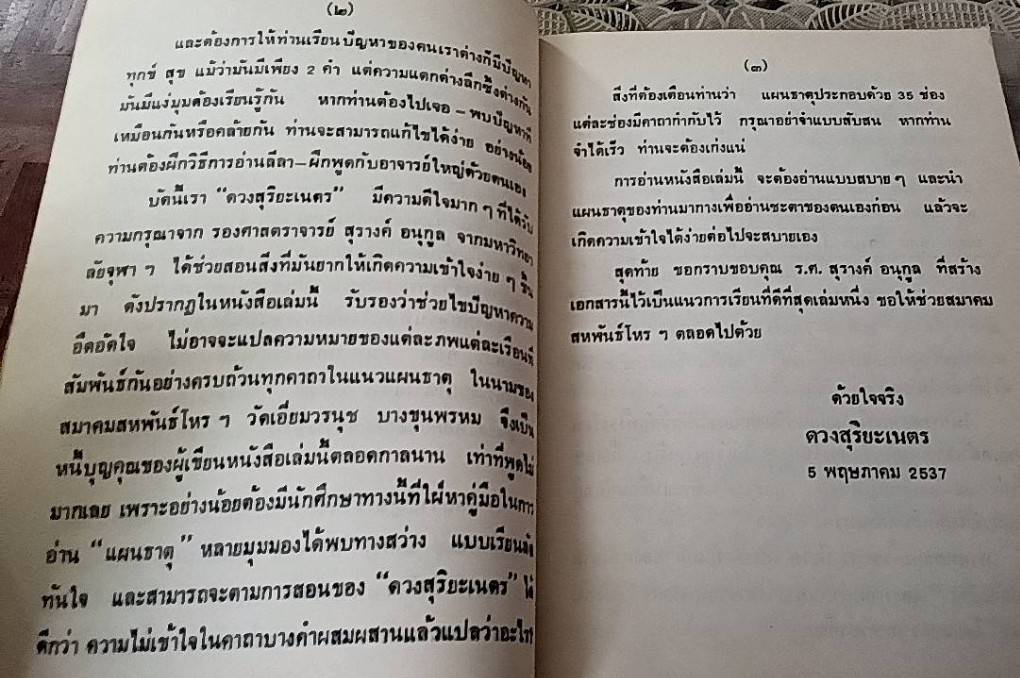 (๒)
และต้องการให้ท่านเรียนปัญหาของคนเราต่างก็มีปัญหา
ทุกข์ สุข แม้ว่ามันมีเพียง 2 คำ แต่ความแตกต่างลึกซึ้งต่างกัน
มันมีแง่มุมต้องเรียนรู้กัน หากท่านต้องไปเจอ – พบปัญหาที่
เหมือนกันหรือคล้ายกัน ท่านจะสามารถแก้ไขได้ง่าย อย่างน้อย
ท่านต้องฝึกวิธีการอ่านลีลา–ฝึกพูดกับอาจารย์ใหญ่ด้วยตนเอง
บัดนี้เรา “ดวงสุริยะเนตร” มีความดีใจมาก ๆ ที่ได้รับ
ความกรุณาจาก รองศาสตราจารย์ สุรางค์ อนุกูล จากมหาวิทยา
ลัยจุฬา ฯ ได้ช่วยสอนสิ่งที่มันยากให้เกิดความเข้าใจง่าย ๆ ขึ้น
มา ดังปรากฏในหนังสือเล่มนี้ รับรองว่าช่วยไขปัญหาความ
อึดอัดใจ ไม่อาจจะแปลความหมายของแต่ละภพแต่ละเรือนที่
สัมพันธ์กันอย่างครบถ้วนทุกคาถาในแนวแผนธาตุ ในนามของ
สมาคมสหพันธ์โหร ฯ วัดเอี่ยมวรนุช บางขุนพรหม จึงเป็น
หนี้บุญคุณของผู้เขียนหนังสือเล่มนี้ตลอดกาลนาน เท่าที่พูดไม่
มากเลย เพราะอย่างน้อยต้องมีนักศึกษาทางนี้ที่ใฝ่หาคู่มือในการ
อ่าน “แผนธาตุ” หลายมุมมองได้พบทางสว่าง แบบเรียนลัด
ทันใจ และสามารถจะตามการสอนของ “ดวงสุริยะเนตร” ได้
ดีกว่า ความไม่เข้าใจในคาถาบางคำผสมผสานแล้วแปลว่าอะไร
(๓)
สิ่งที่ต้องเตือนท่านว่า แผนธาตุประกอบด้วย 35 ช่อง
แต่ละช่องมีคาถากำกับไว้ กรุณาอย่าจำแบบสับสน หากท่าน
จำได้เร็ว ท่านจะต้องเก่งแน่
การอ่านหนังสือเล่มนี้ จะต้องอ่านแบบสบาย ๆ และนำ
แผนธาตุของท่านมากางเพื่ออ่านชะตาของตนเองก่อน แล้วจะ
เกิดความเข้าใจได้ง่ายต่อไปจะสบายเอง
สุดท้าย ขอกราบขอบคุณ ร.ศ. สุรางค์ อนุกูล ที่สร้าง
เอกสารนี้ไว้เป็นแนวการเรียนที่ดีที่สุดเล่มหนึ่ง ขอให้ช่วยสมาคม
สหพันธ์โหร ฯ ตลอดไปด้วย
ด้วยใจจริง
ดวงสุริยะเนตร
5 พฤษภาคม 2537